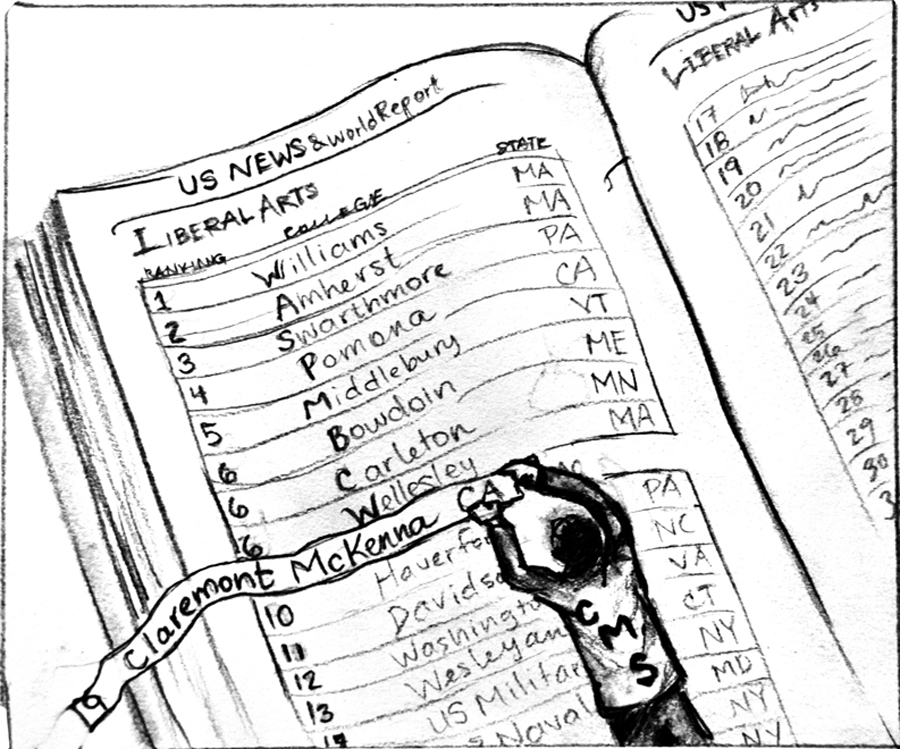 US NEWS & World Report
LIBERAL ARTS
RANKIANG COLLEGE STATE
1 Williams MA
2 Amherst MA
3 Swarthmore PA
4 Pomona CA
5 Middlebury VT
6 Bowdoin ME
6 Carleton MN
6 Wellesley MA
9 Claremont McKenna CA
10 Haverfo PA
11 Davidso NC
12 Washingto VA
13 Wesleyan CT
14 US Militar NY
s Naval MD
NY
NY
CMS
US
LIBERAL ARTS
17
18
19
20
21
22
23
24
25
26
27
28
29
30
3